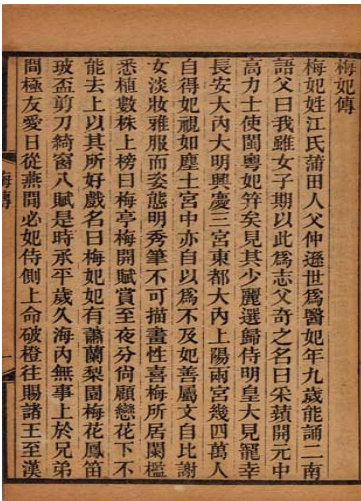 梅妃傳
梅妃姓江氏莆田人父仲遜世爲醫妃年九歲能誦二南
語父曰我雖女子期以此爲志父奇之名曰采蘋開元中
高力士使閩粵妃笄矣見其少麗選歸侍明皇大見寵幸
長安大內大明興慶三宮東都大內上陽兩宮幾四萬人
自得妃視如塵土宮中亦自以爲不及妃善屬文自比謝
女淡妝雅服而姿態明秀筆不可描畫性喜梅所居闌檻
悉植數株上榜曰梅亭梅開賦賞至夜分尚顧戀花下不
能去上以其所好戲名曰梅妃妃有蕭蘭梨園梅花鳳笛
玻盃剪刀綺窗八賦是時承平歲久海內無事上於兄弟
間極友愛日從燕閒必妃侍側上命破橙往賜諸王至漢